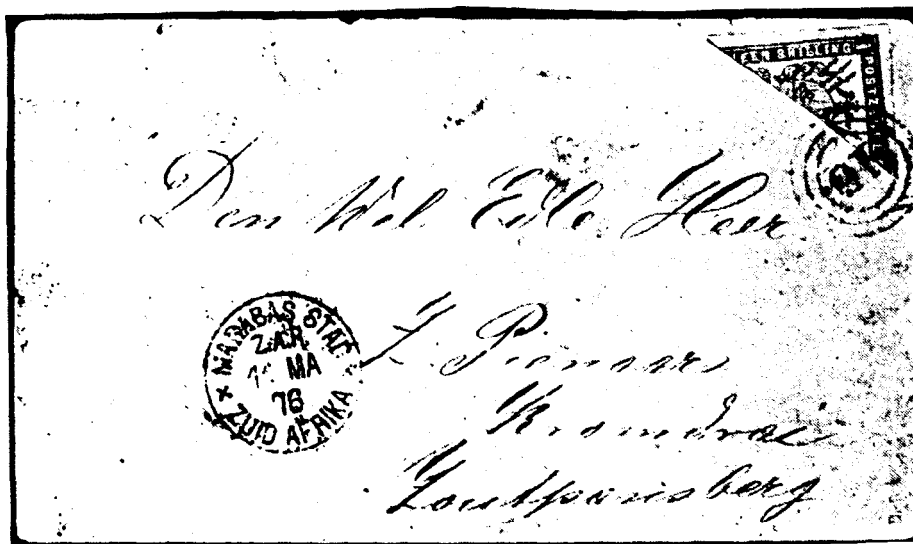 EEN SHILLING
POSTZEGEL
Den Wel Edle Heer
MARABAS STAD
Z.A.R.
MA
76
ZUID AFRIKA
Z. Pienaar
Kromdraai
Zoutpansberg